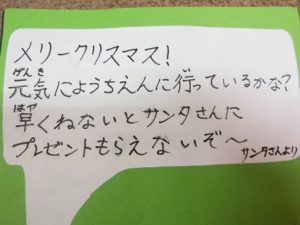 メリークリスマス！
げんき
元気にようちえんに行っているかな？
はヤ
早くねないとサンタさんに
プレゼントもらえないぞ〜
サンタさんより